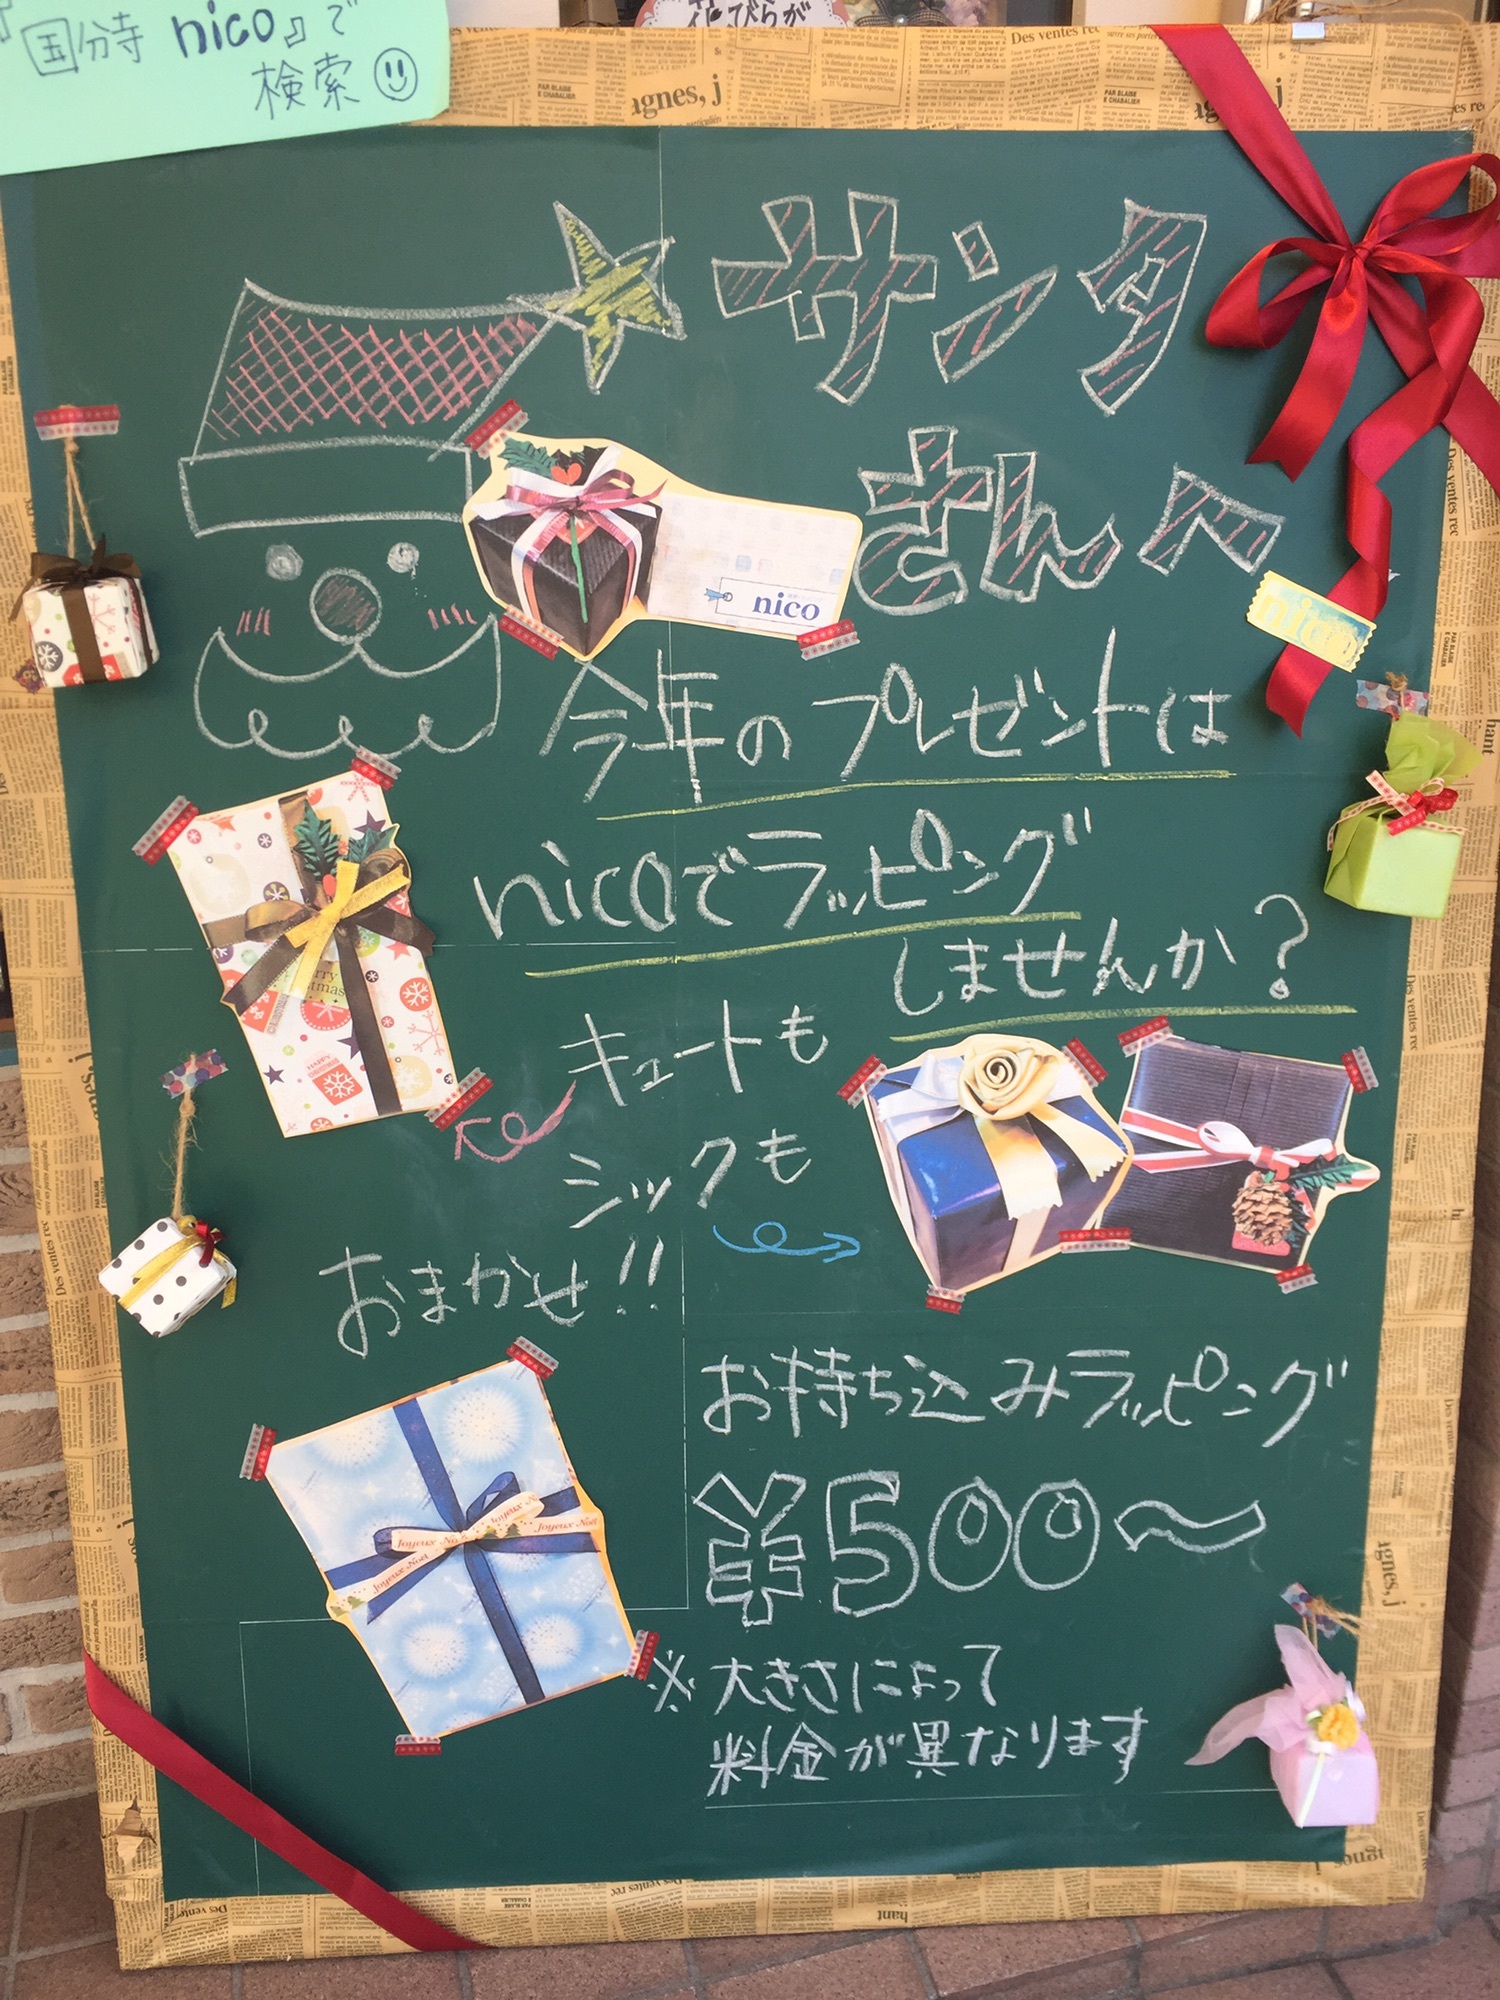 『国分寺 nico』で
検索
花びらが
サンタ
さんへ
nico
nico
今年のプレゼントは
nicoでラッピング
しませんか?
キュートも
シックも
おまかせ!!
お持ち込みラッピング
¥500〜
※大きさによって
料金が異なります
Joyeux Noël
Des ventes rec
agnes, j
PAR BLAISE
E CHABALIER